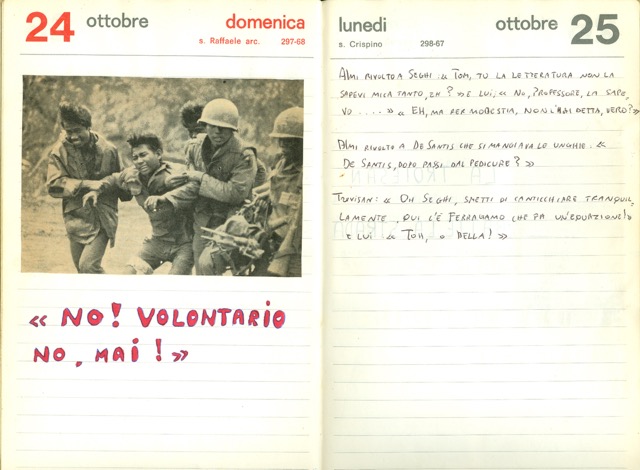 24 ottobre domenica
s. Raffaele arc. 297-68
« NO! VOLONTARIO
NO, MAI! »
lunedi ottobre 25
s. Crispino 298-67
ALMI RIVOLTO A SEGHI « TOM, TU LA LETTERATURA NON LA
SAPEVI MICA TANTO, EH? » E LUI, « NO, PROFESSORE, LA SAPE
VO .... » « EH, MA PER MODESTIA, NON L'HAI DETTA, VERO? »
ALMI RIVOLTO A DE SANTIS CHE SI MANGIAVA LE UNGHIE. «
DE SANTIS, DOPO PASSI DAL PEDICURE? »
TREVISAN: « OH SEGHI, SMETTI DI CANTICCHIARE TRANQUIL
LAMENTE, QUI C'È FERRAGAMO CHE FA UN'EQUAZIONE! »
E LUI « TOM, O DELLA! »